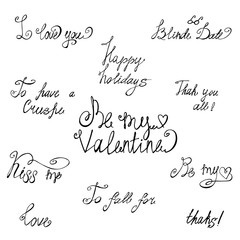 I love you
Happy
holidays
Blinde Date
To have a
Crush
Be my
Valentine
Thak you
all!
Kiss me
To fall for
Be my
love
thaks!